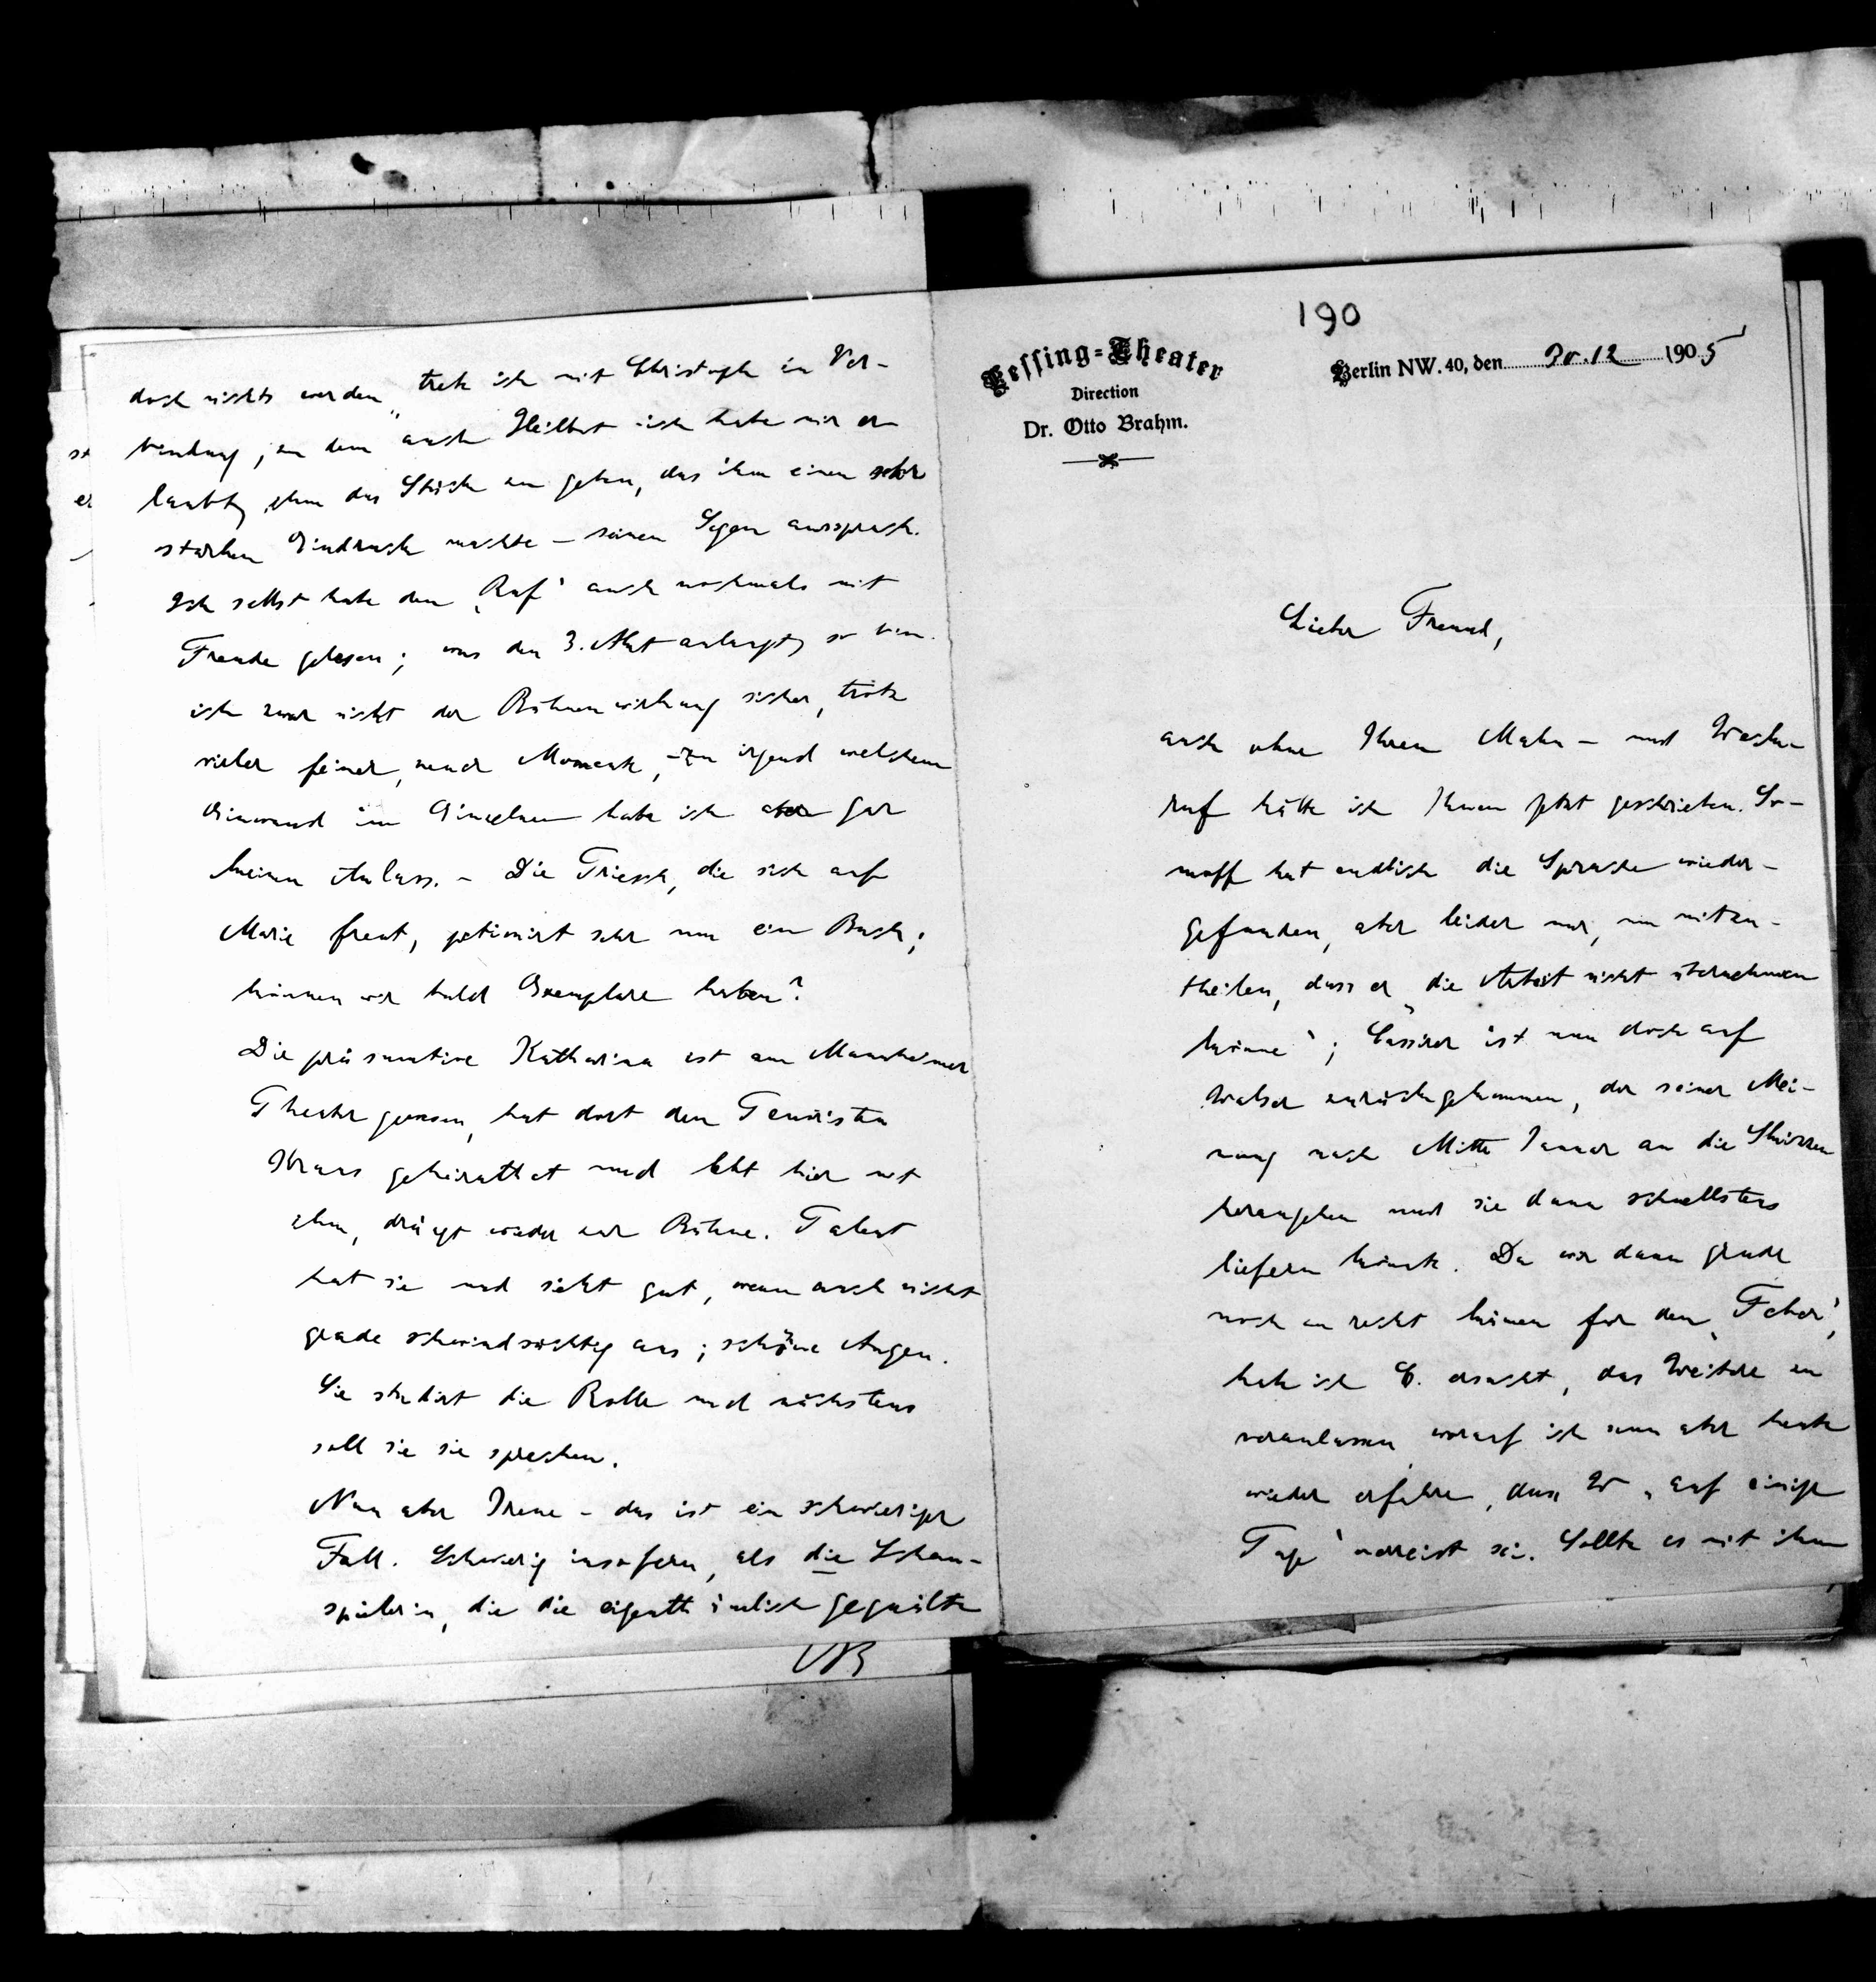 190
Lessing=Theater
Direction
Dr. Otto Brahm.
Berlin NW. 40, den 30.12 1905
Lieber Freund,
auch ohne Ihren Mahn – und Weck-
ruf hätte ich Ihnen jetzt geschrieben. So-
moff hat endlich die Sprache wieder-
gefunden, aber leider nur, um mitzu-
theilen, dass er „die Arbeit nicht übernehmen
könne‘; Cassirer ist nun doch auf
Walser zurückgekommen, der seiner Mei-
nung nach Mitte Januar an die Skizzen
herangehen und sie dann schnellstens
liefern könnte. Da wir dann grade
noch zu recht kämen für den ‚Feber‘,
habe ich C. ersucht, das Weitere zu
veranlassen, worauf ich nun aber heute
wieder erfahre, dass W „auf einige
Tage‘ verreist sei. Sollte es mit ihm
doch nichts werden, trete ich mit Christoph in Ver-
bindung, zu dem auch Heilbut – ich habe mir er
laubt, ihm das Stück zu geben, das ihm einen sehr
starken Eindruck machte – seinen Segen aussprach.
Ich selbst habe den ‚Ruf‘ auch nochmals mit
Freude gelesen; was den 3. Akt anlangt, so bin
ich zwar nicht der Bühnenwirkung sicher, trotz
vieler feiner, neuer Momente, – zu irgend welchem
Einwand im Einzelnen habe ich aber gar
keinen Anlass. – Die Triesch, die sich auf
Marie freut, petirirt sehr um ein Buch;
können wir bald Exemplare haben?
Die präsumtive Katharina ist am Mannheimer
Theater gewesen, hat dort den Tenoristen
Kraus geheirathet und lebt hier mit
ihm, drängt wieder zur Bühne. Talent
hat sie und sieht gut, wenn auch nicht
grade schwindsüchtig aus; schöne Augen.
Sie studirt die Rolle und nächstens
soll sie sie sprechen.
Nun aber Irene – das ist ein schwieriger
Fall. Schwierig insofern, als die Schau-
spielerin, die die eigenthümlich gequälte